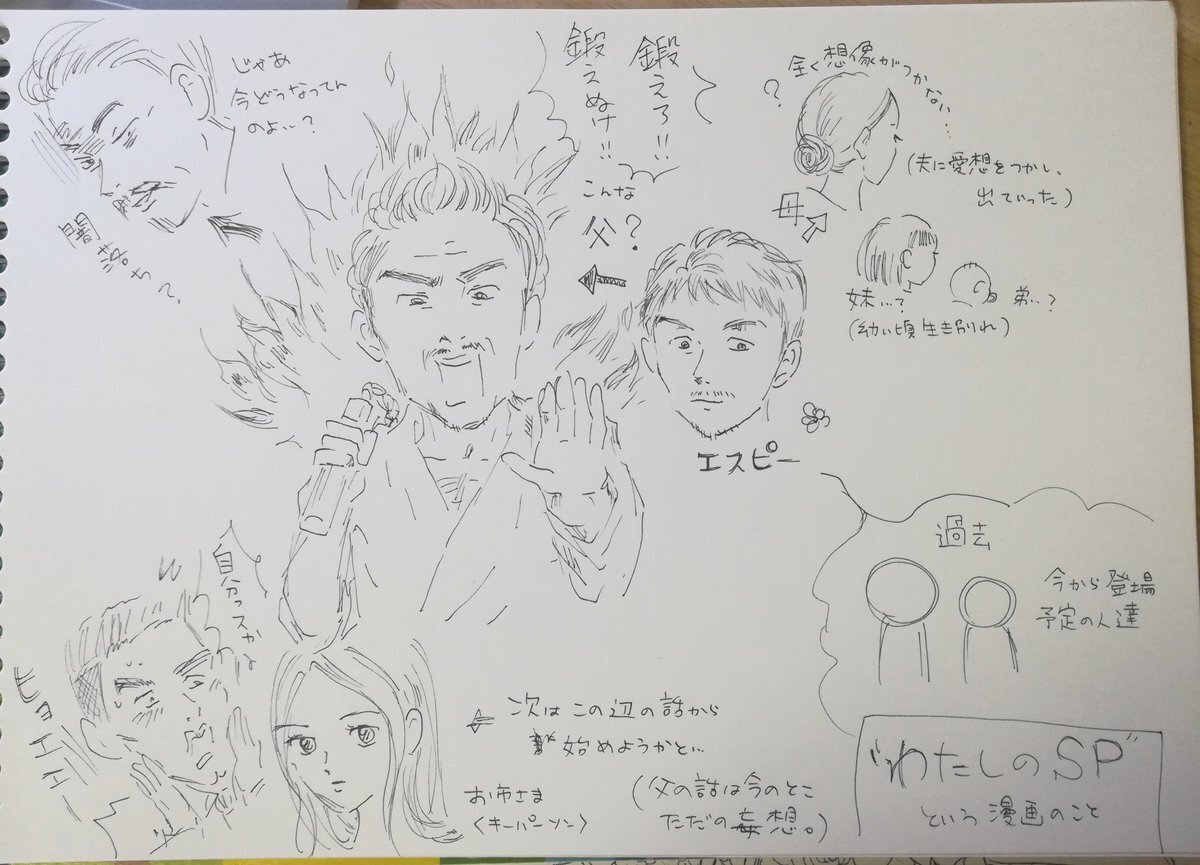 じゃあ
今どうなってん
のよ…?
闇落ちて、
鍛えろ!!
鍛えぬけ!!
こんな
父?
全く想像がつかない…
?
(夫に愛想をつかし、
出ていった)
母
妹…?
弟…?
(幼い頃生き別れ)
エスピー
過去
今から登場
予定の人達
自分っスかぁ
ヒョエエー
次はこの辺の話から
始めようかと…
お市さま
<キーパーソン>
(父の話は今のとこ
ただの妄想。)
"わたしのSP"
という漫画のこと